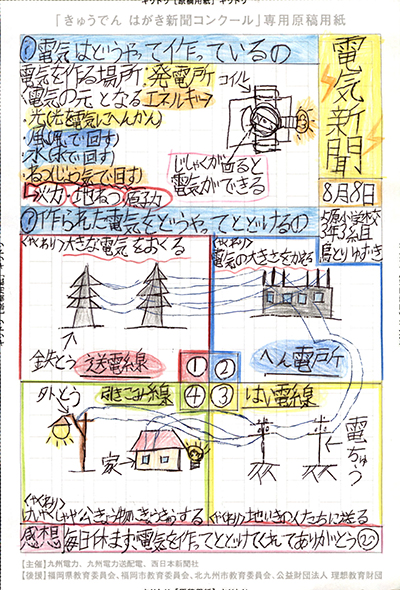 キリトリ【原稿用紙】キリトリ
「きゅうでん はがき新聞コンクール」専用原稿用紙
電気新聞
8月8日
3年3組
①電気はどうやって作っているの
電気を作る場所 発電所
電気の元となるエネルギー
・光(光を電気にへんかん)
・風(風で回す)
・水(水で回す)
・ねつ(じょう気で回す)
火力・地ねつ・原子力
コイル
じしゃくが回ると
電気ができる
②作られた電気をどうやってとどけるの
<やくわり>大きな電気をおくる
鉄とう 送電線
①
<やくわり>
電気の大きさをかえる
へん電所
②
はい電線
③
電ちゅう
<やくわり>地いきの人たちに送る
引きこみ線
④
外とう
家→
<やくわり>
感想 毎日休まず、電気を作ってとどけてくれてありがとう
【主催】九州電力、九州電力送配電、西日本新聞社
【後援】福岡県教育委員会、福岡市教育委員会、北九州市教育委員会、公益財団法人 理想教育財団